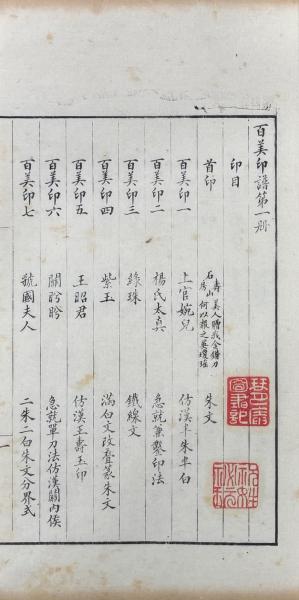 百美印譜第一册
印目
首印 壽山石房 美人贈我金錯刀何以報之英瓊瑤 朱文
百美印一 上官婉兒 仿漢半朱半白
百美印二 楊氏太真 急就兼鑿印法
百美印三 綠珠 鐵線文
百美印四 紫玉 滿白文改疊篆朱文
百美印五 王昭君 仿漢王壽玉印
百美印六 關盼盼 急就單刀法仿漢關內侯
百美印七 虢國夫人 二朱二白朱文分界式